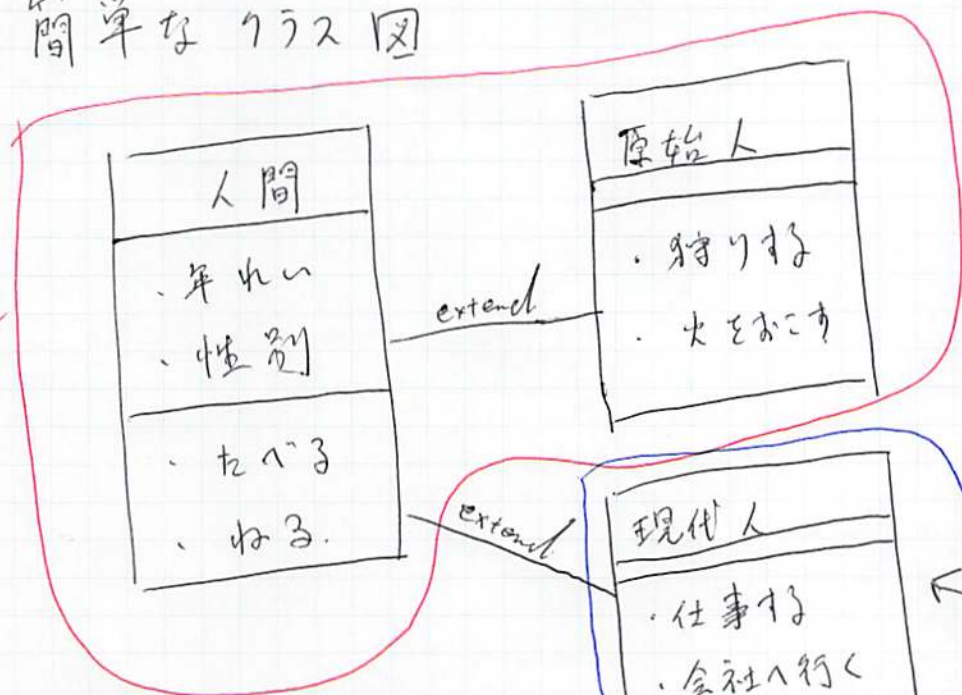 簡単なクラス図
人間
・年れい
・性別
・たべる
・ねる.
extend
原始人
・狩りする
・火をおこす
extend
現代人
・仕事する
・会社へ行く